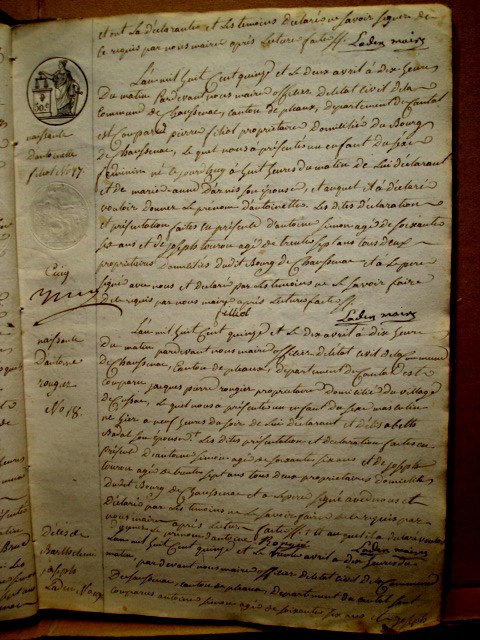 et ont la déclarante et les temoins déclaré ne savoir signer de
ce requis par nous maire après lecture faite ff. Laden maire
L'an mil huit cent quinze et le deux avril à dix heures
du matin Pardevant nous maire officier de l'état civil de la
commune de Chaussenac, canton de pleaux, département du Cantal
est comparu pierre filiol propriétaire domicilié du Bourg
de Chaussenac, le quel nous a présenté un enfant du sexe
féminin né le jour à huit heures du matin de lui déclarant
et de marie-anne Darnis son épouse, et auquel il a déclaré
vouloir donner le prénom d'antoinette. Les dites déclaration
et présentation faites en présence d'antoine simon agé de soixante
six ans et de joseph louron agé de trente sept ans tous deux
propriétaires domiciliés dudit Bourg de Chaussenac et a le pere
signé avec nous et déclaré par les temoins ne le savoir faire
de ce requis par nous maire après lecture faite ff
filliol Laden maire
L'an mil huit cent quinze et le dix avril à dix heure
du matin pardevant nous maire officier de l'état civil de la commune
de Chaussenac, canton de pleaux, département du Cantal est
comparu jacques pierre rougier propriétaire domicilié du village
de le quel nous a présenté un enfant du sexe masculin
né hier a neuf heures du soir de lui déclarant et d'élisabette
son épouse. Les dites présentation et déclaration faites en
présence d'antoine simon agé de soixante six ans et de joseph
louron agé de trente sept ans tous deux propriétaires domiciliés
dudit Bourg de Chaussenac et a le pere signé avec nous et
déclaré par les temoins ne le savoir faire de ce requis par
nous maire après lecture faite ff. et au quel il a déclaré vouloir
donner le prénom d'antoine Laden maire
L'an mil huit cent quinze et le avril à dix heures du
matin, par devant nous maire officier de l'état civil de la commune
de Chaussenac, canton de pleaux, département du cantal sont
comparus antoine simon agé de soixante six ans et joseph
50 c
naissance
d'antoinette
filiol No 17.
naissance
D'antoine
rougier
No 18.
Décès de
Barthelemi
joseph
Laden No